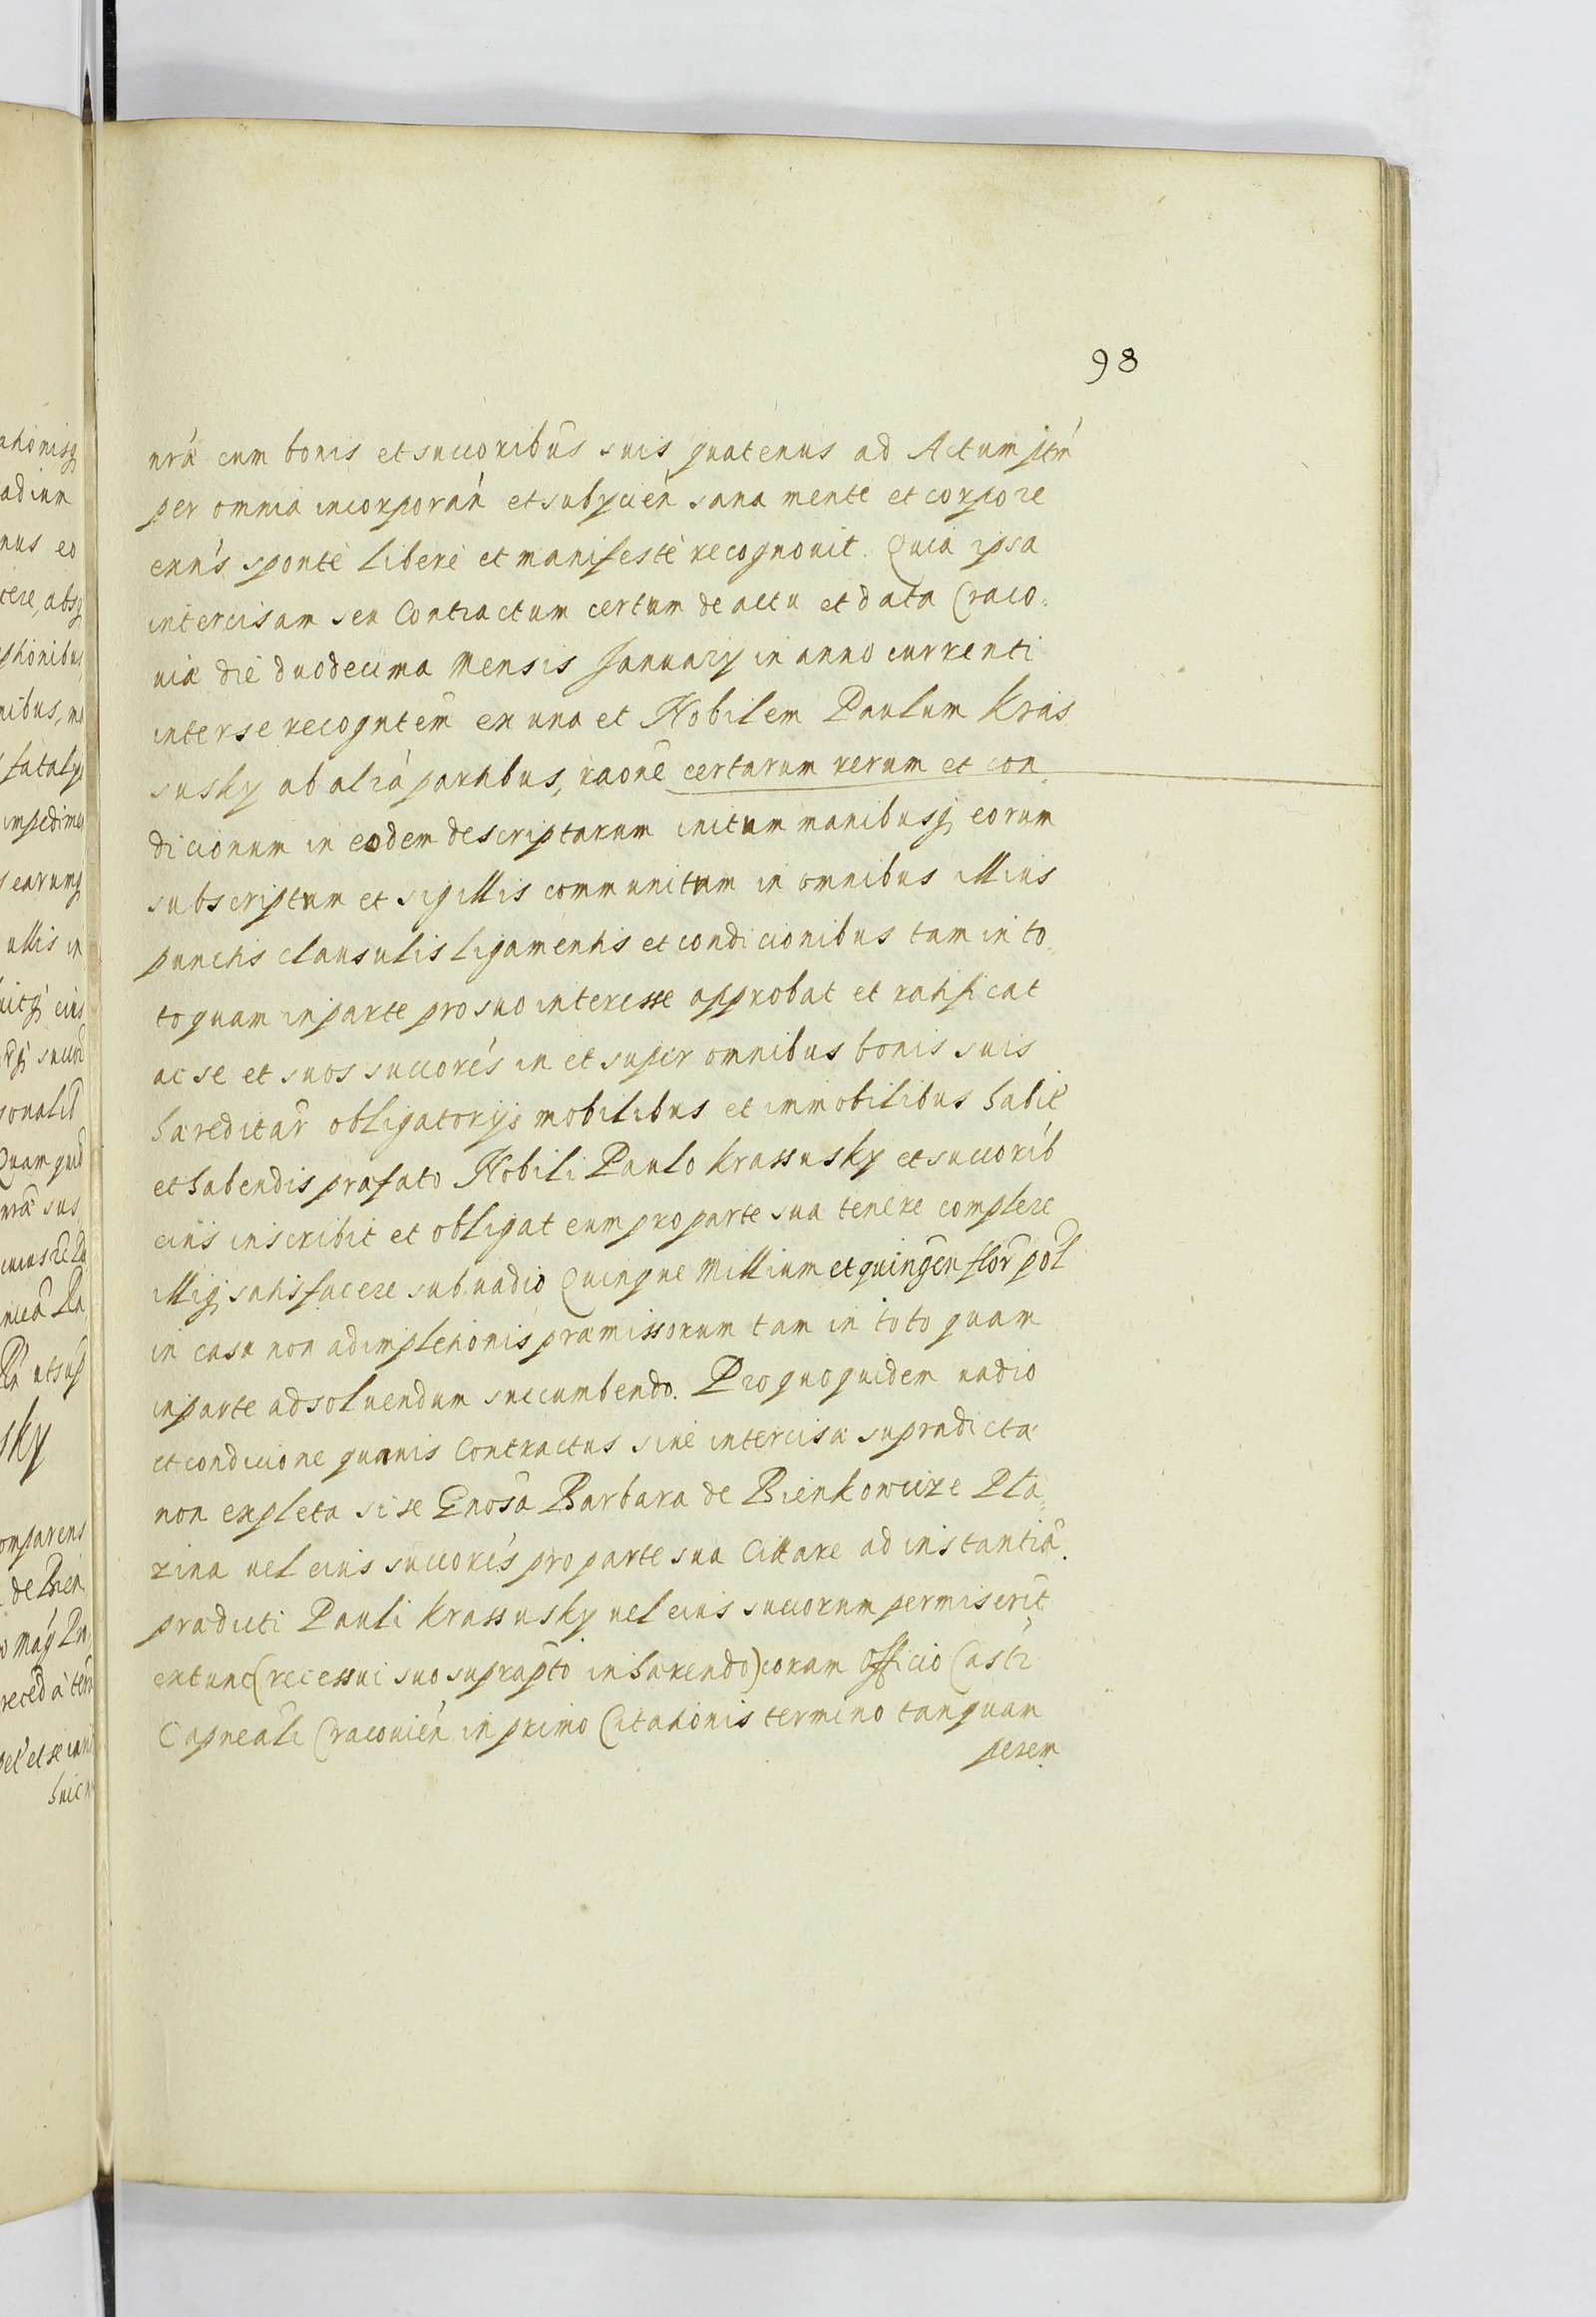 98
nrá cum bonis et succoribūs suis quatenus ad Actum pn̄tm
per omnia incorporań et subycień sana mente et corpore
exn̄s sponte libere et manifeste recognouit. Quia ipsa
intercisam seu Contractum certum de actu et data Craco„
uiæ die duodecima Mensis Januarÿ in anno currenti
inter se recogntem̄ ex una et Nobilem Paulum Kras
susky ab aliá partibus, raōne certarum rerum et con„
dicionum in eodem descriptarum initum manibusq; eorum
subscriptum et sigillis communitum in omnibus illius
punctis clausulis ligamentis et condicionibus tam in to„
to quam in parte pro suo interesse approbat et ratificat
ac se et suos succorés in et super omnibus bonis suis
hæreditar̄ obligatorÿs mobilibus et immobilibus habit̄
et habendis præfato Nobili Paulo Krassusky et succorib́
eius inscribit et obligat eum pro parte sua tenere complere
illiq; satisfacere sub uadio Quinque Millium et quingen̄ flor̄ pol̄
in casu non adimpletionis præmissorum tam in toto quam
in parte ad soluendum succumbendo. Pro quo quidem uadio
et condicione quauis Contractus siue intercisæ supradictæ
non expleta si se Gnosā Barbara de Bienkowicze Pła„
zina uel eius succorés pro parte sua Cittare ad instantiā
prædicti Pauli Krassusky uel eius succorum permiserit
extunc (recessui suo suprapt̄o inhærendo) coram Officio Castr̄
Capneāli Cracouień in primo Citationis termino tanquam
perem„
ationisq;
adium
nus eo
cere, absq;
ptionibus
nibus, mo
fatalÿ
impedimeñ
earumq;
ullis in
uitq; eius
succor̄
sonalit̄
Quam quid̄
nrā sus„
Pa utsup̄
sky
omparens
de Bien„